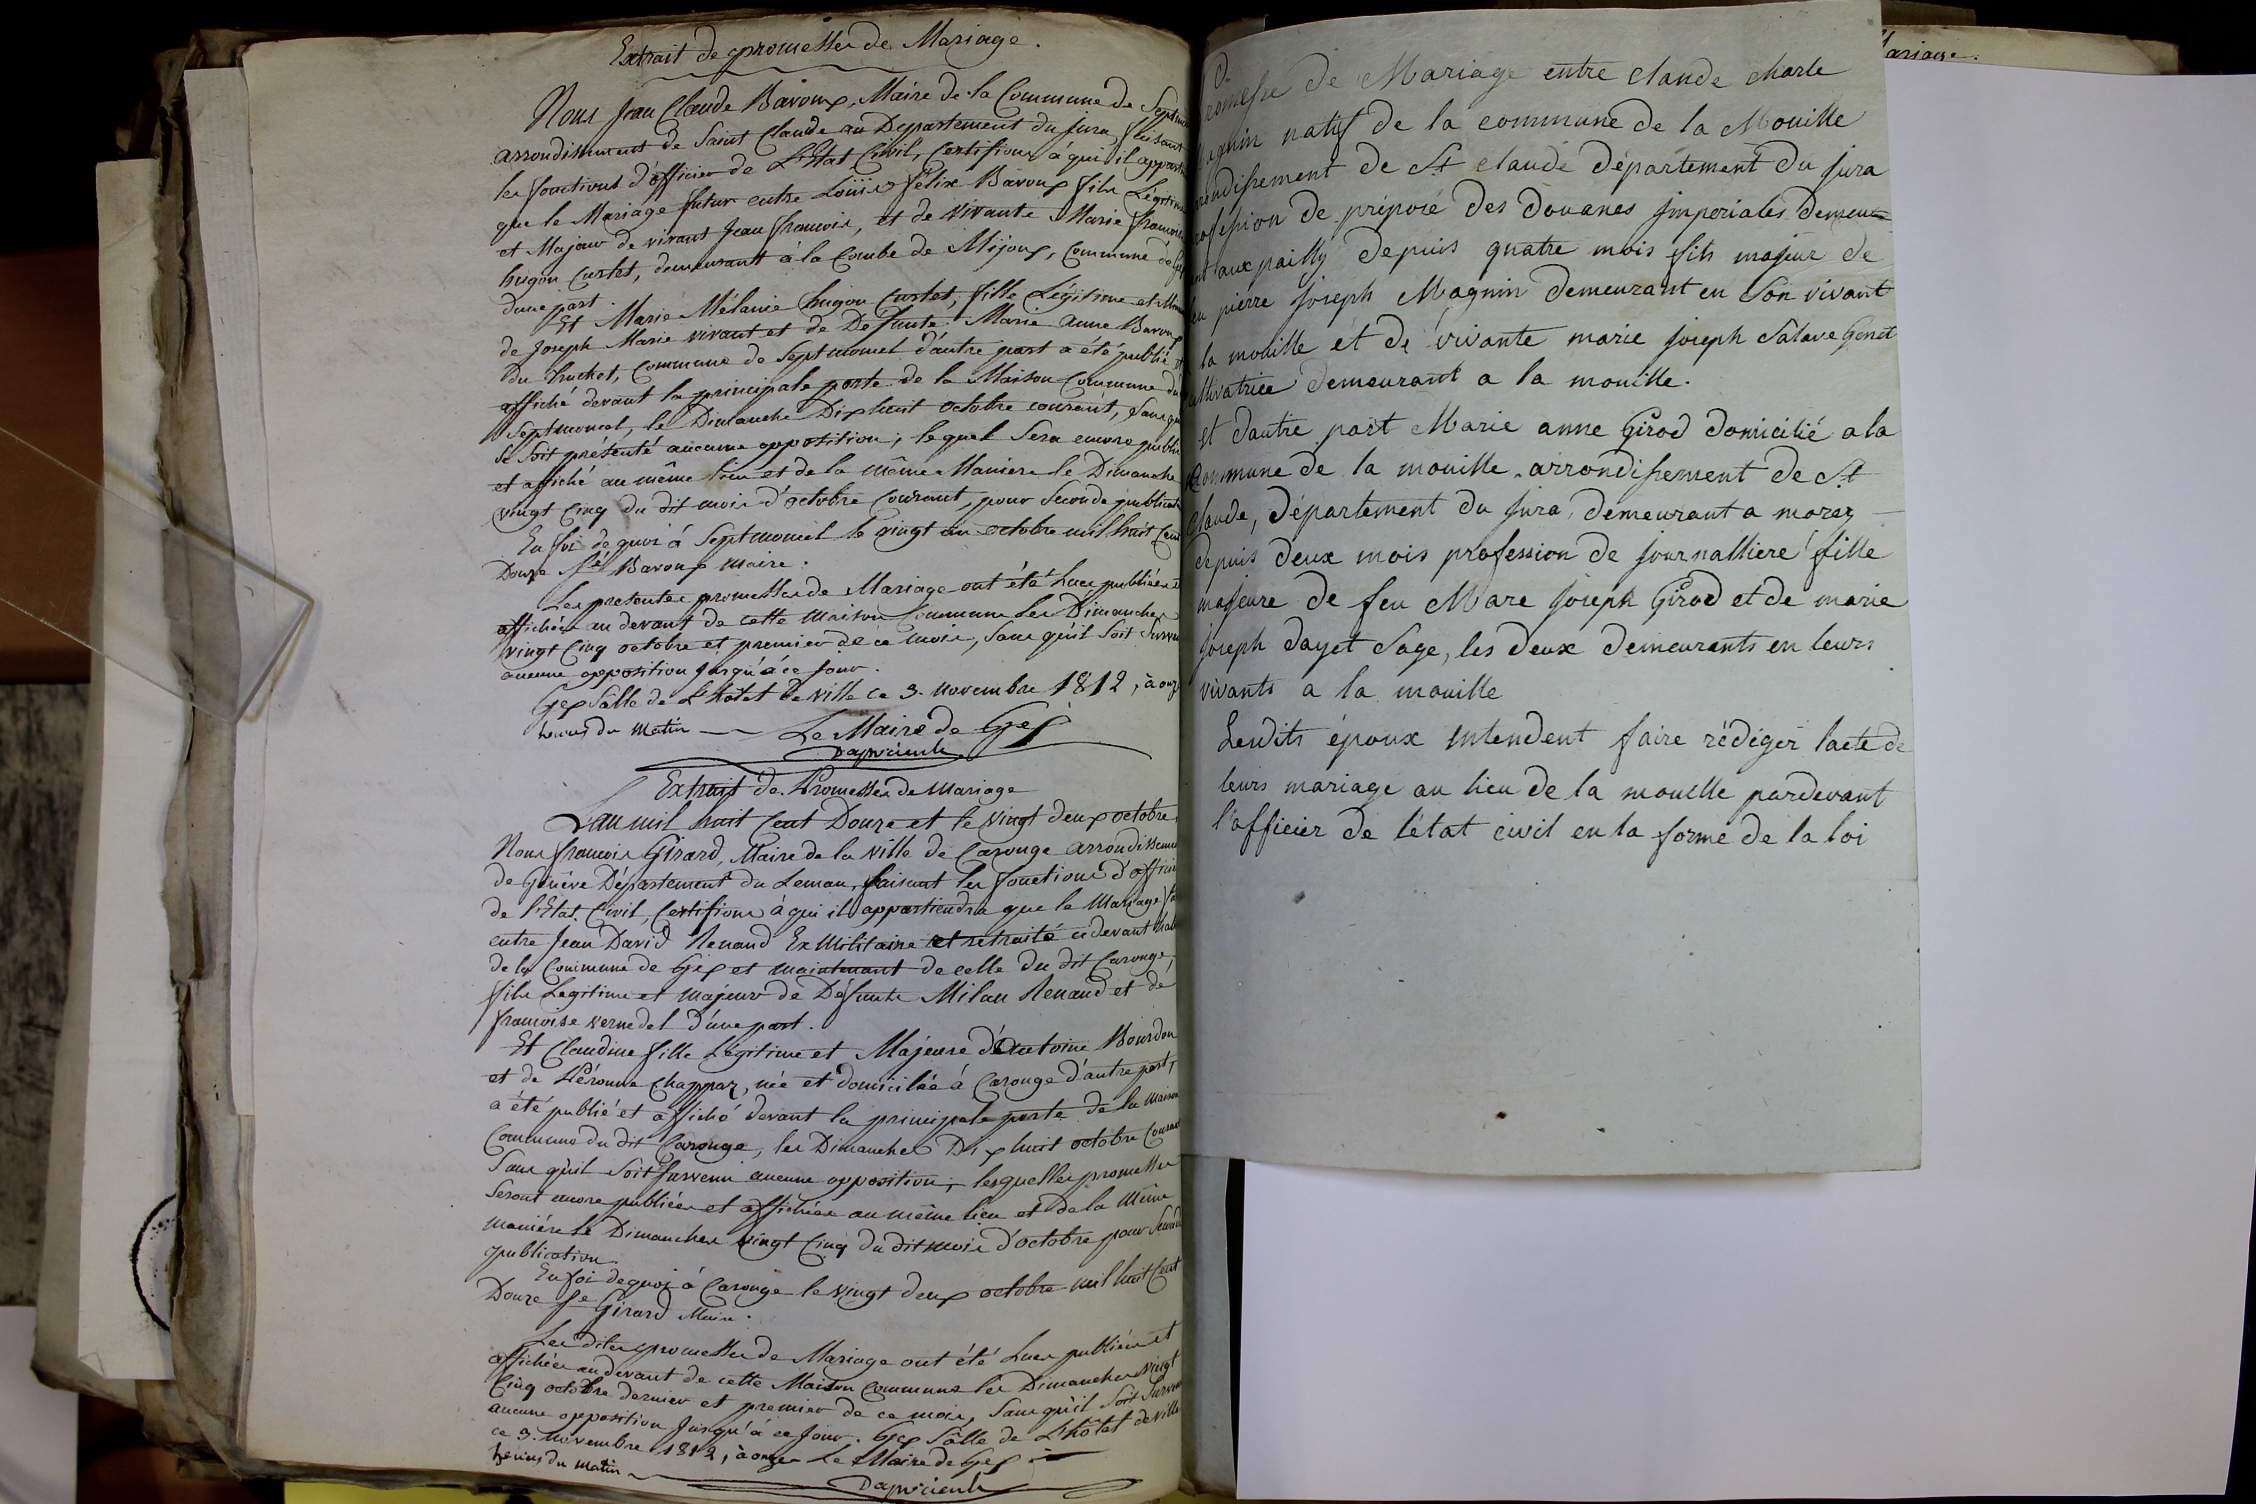 Extrait de promesses de Mariage.
Nous Jean Claude Baroux, Maire de la Commune de Septm
arrondissement de Saint Claude au Departement du Jura, faisant
les fonctions d'officier de L'Etat Civil, Certifions à qui il apparti
que le Mariage futur entre Louis felix Baroux fils Légitime
et Majeur de vivant Jean françois, et de vivante Marie françoise
hugon Curtet, demeurant à la Combe de Mijoux, Commune de Gex
d'une part.
Et Marie Mélanie hugon Curtet, fille Légitime et Min
de Joseph Marie vivant et de Defunte Marie Anne Baroux
du huchet, Commune de Septmoncel d'autre part a été publié et
affiché devant la principale porte de la Maison Commune du
Septmoncel, le Dimanche Dix huit octobre courant, sans qu
se soit présenté aucune opposition; lequel sera encore publié
et affiché au même lieu et de la même Maniere le Dimanche
vingt Cinq du dit mois d'octobre Courant, pour Seconde publicat
En foi de quoi à Septmoncel le vingt un octobre mil huit Cent
Douze Sé Baroux Maire.
Les presentes promesses de Mariage ont été Lues publiées et
affichées au devant de cette Maison Commune les Dimanches
vingt Cinq octobre et premier de ce mois, Sans qu'il Soit Surven
aucune opposition jusqu'à ce jour.
Gex Salle de L'hôtel de ville ce 3. novembre 1812, à onze
heures du Matin Le Maire de Gex
Extrait de Promesses de Mariage
L'an mil huit Cent Douze et le vingt deux octobre
Nous françois Girard, Maire de la ville de Carouge arrondissemen
de Genêve Département du Leman, faisant les fonctions d'officie
de l'Etat Civil, Certifions à qui il appartiendra que le Mariage fu
entre Jean David Renaud Ex Militaire et retraité cidevant hab
de la Commune de Gex et maintenant de celle du dit Carouge,
fils Legitime et Majeur de Défunts Milan Renaud et de
françoise vernedel D'une part.
Et Claudine fille Légitime et Majeure d'Antoine Bourdon
et de Péronne Chappaz, née et domiciliée à Carouge d'autre part,
a été publié et affiché devant la principale porte de la Maison
Commune du dit Carouge, les Dimanches Dix huit octobre Courant
Sans qu'il Soit Survenu aucune opposition; lesquelles promesses
Seront encore publiées et affichées au même lieu et de la Même
maniére le Dimanches vingt Cinq du dit mois d'octobre pour Second
publication.
En foi de quoi à Carouge le vingt deux octobre mil huit Cent
Douze Sé Girard Maire.
Les dites promesses de Mariage ont été Lues publiées et
affichées au devant de cette Maison Commune les Dimanches vingt
Cinq octobre dernier et premier de ce mois, Sans qu'il Soit Surven
aucune opposition Jusqu'à ce jour. Gex Sâlle de L'hôtel de ville
ce 3. novembre 1812, à onze Le Maire de Gex
heures du matin
omesse de Mariage entre claude charle
agnin natif de la commune de la Mouille
rondissement de St claude département du jura
ofession de préposé des douanes jmperiales demeu=
nt aux pailly depuis quatre mois fils majeur de
eu pierre joseph Magnin demeurant en Son vivant
la mouille et de vivante marie joseph Salave Genet
ultivatrice demeurant a la mouille.
et dautre part Marie anne Girod domicilié a la
Commune de la mouille arrondissement de St
claude, département du jura, demeurant a morez
depuis deux mois profession de journalliere fille
majeure de feu Marc joseph Girod et de marie
joseph dayet Sage, les deux demeurants en leurs
vivants a la mouille
Lesdits époux intendent faire rédiger lacte de
leurs mariage au lieu de la mouille pardevant
l'officier de létat civil en la forme de la loi
ariage.